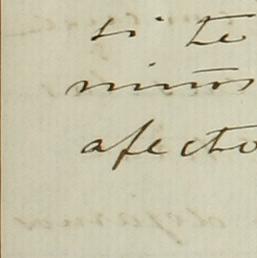 si te
niños
afecto